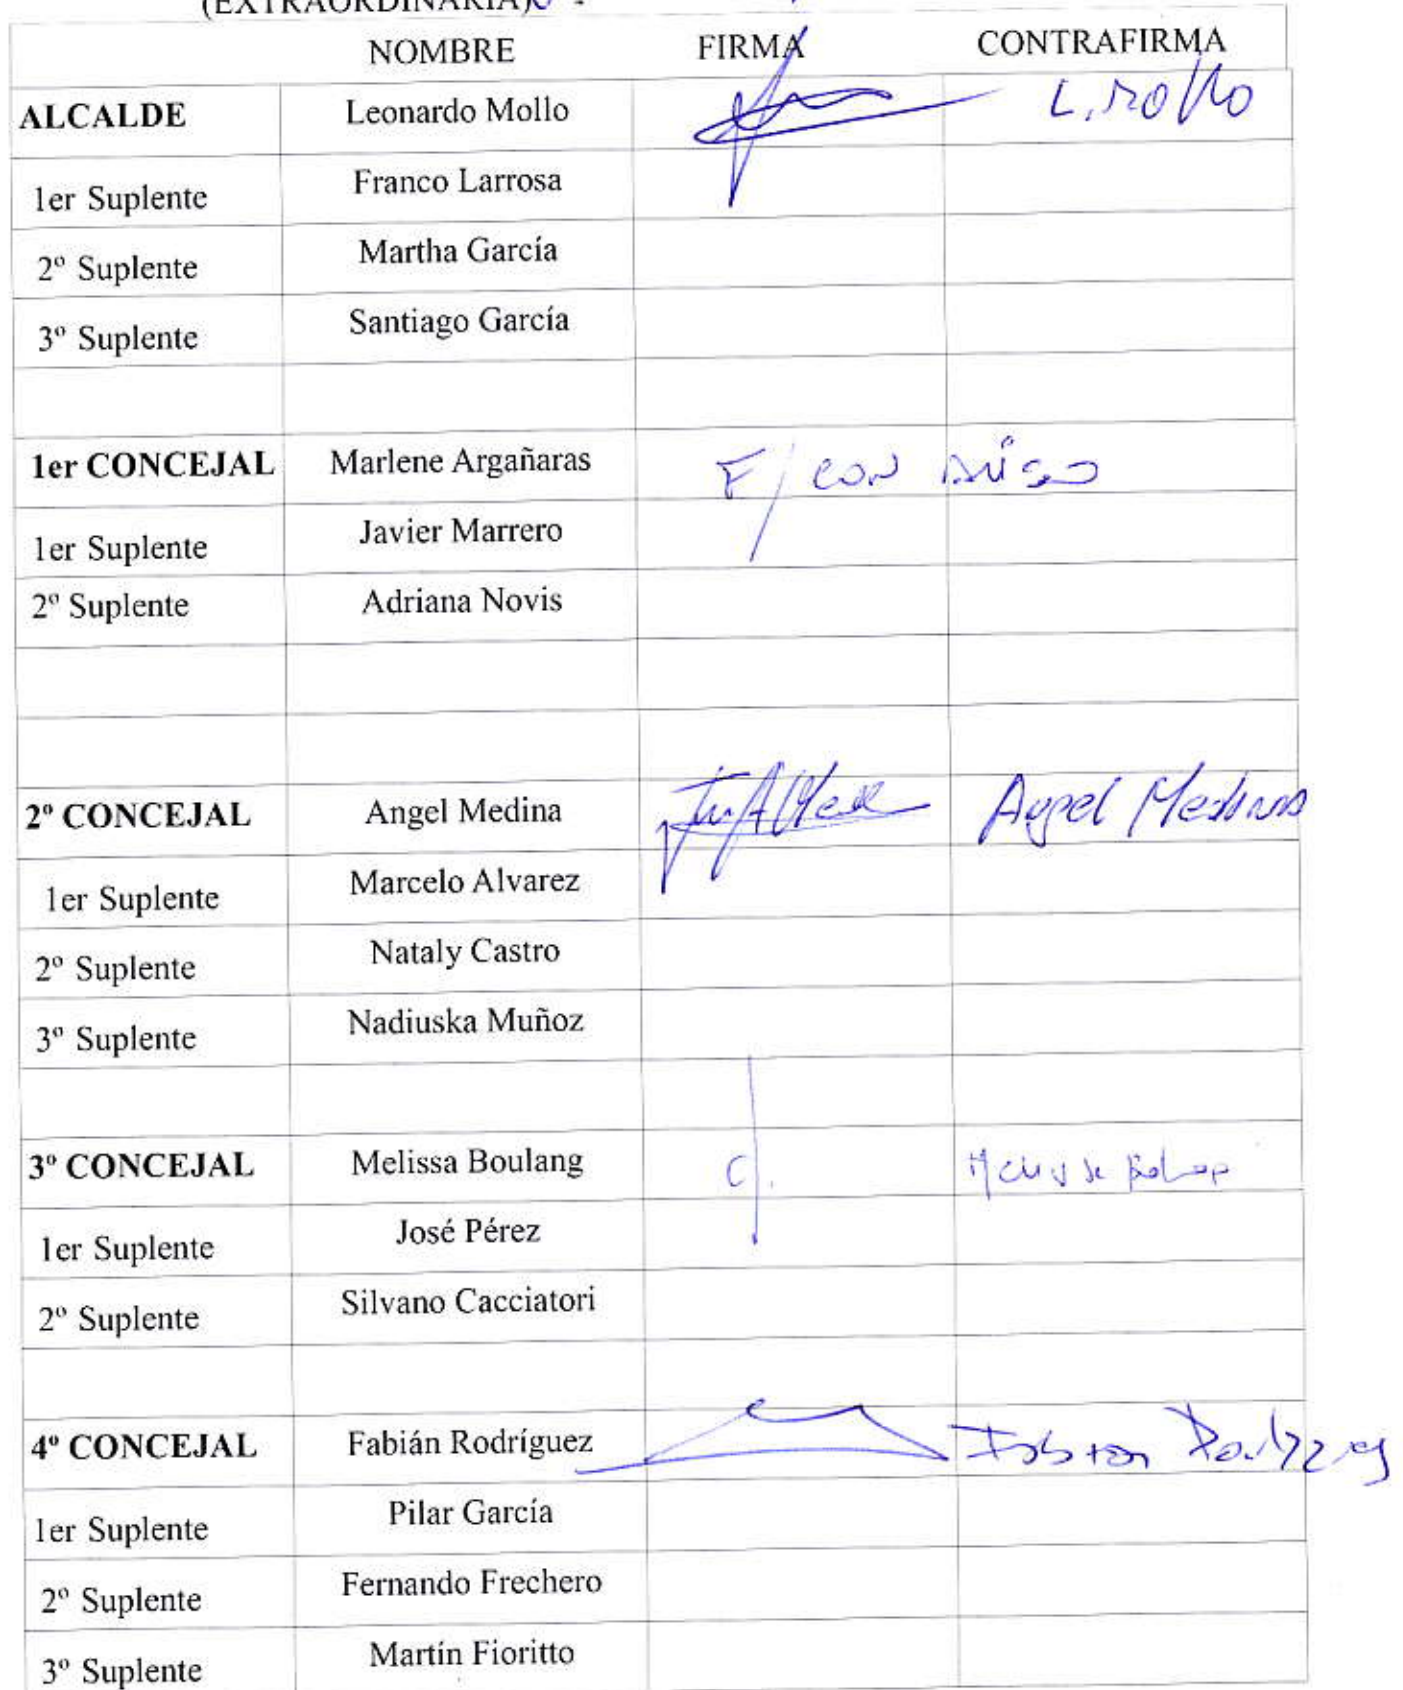 (EXTRAORDINARIA)
NOMBRE FIRMA CONTRAFIRMA
ALCALDE Leonardo Mollo L. Mollo
1er Suplente Franco Larrosa
2º Suplente Martha García
3º Suplente Santiago García
1er CONCEJAL Marlene Argañaras F/ CON AVISO
1er Suplente Javier Marrero
2º Suplente Adriana Novis
2º CONCEJAL Angel Medina Angel Medina
1er Suplente Marcelo Alvarez
2º Suplente Nataly Castro
3º Suplente Nadiuska Muñoz
3º CONCEJAL Melissa Boulang
1er Suplente José Pérez
2º Suplente Silvano Cacciatori
4º CONCEJAL Fabián Rodríguez Fabian Rodriguez
1er Suplente Pilar García
2º Suplente Fernando Frechero
3º Suplente Martín Fioritto